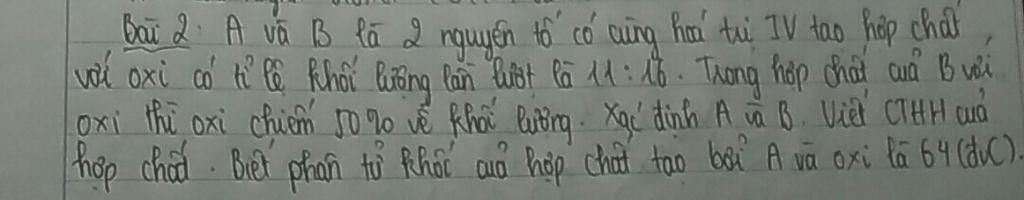 Bài 2: A và B là 2 nguyên tố có cùng hoá trị IV tạo hợp chất
với oxi có tỉ lệ khối lượng lần lượt là 11 : 16. Trong hợp chất của B với
oxi thì oxi chiếm 50% về khối lượng. Xác định A và B. Viết CTHH của
hợp chất. Biết phân tử khối của hợp chất tạo bởi A và oxi là 64 (đvC).